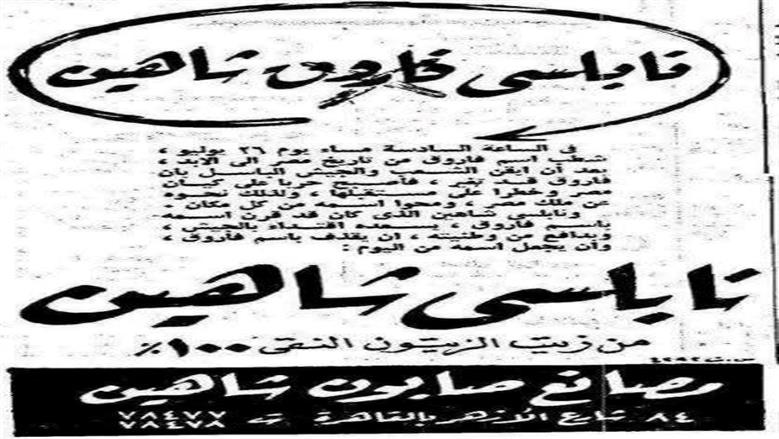 نابلسى فاروق شاهين
فى الساعة السادسة مساء يوم ٢٦ يوليو ،
شطب اسم فاروق من تاريخ مصر الى الابد ،
بعد أن ايقن الشعب والجيش الباسل بان
فاروق قد تغير ، فأصبح حربا على كيان
مصر وخطرا على مستقبلها ، ولذلك نحوه
عن ملك مصر ، ومحوا اسمه من كل مكان ٠
ونابلسي شاهين الذى كان قد قرن اسمه
باسم فاروق ، يسعده اقتداء بالجيش ،
وبدافع من وطنيته ، ان يقذف باسم فاروق ،
وأن يجعل اسمه من اليوم :
نابلسى شاهين
من زيت الزيتون النقى ١٠٠٪
س.ت ٤٢٩٢
مصانع صابون شاهين
٨٤ شارع الأزهر بالقاهرة ت ٧٨٤٧٧
٧٨٤٧٨